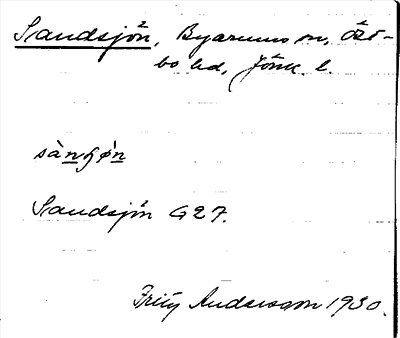 Sandsjön, Byarums sn, Öst-
bo hd, Jönk. l.
sàn̲ɧø̀n̲
Sandsjön G27.
Fritz Andersson 1930.